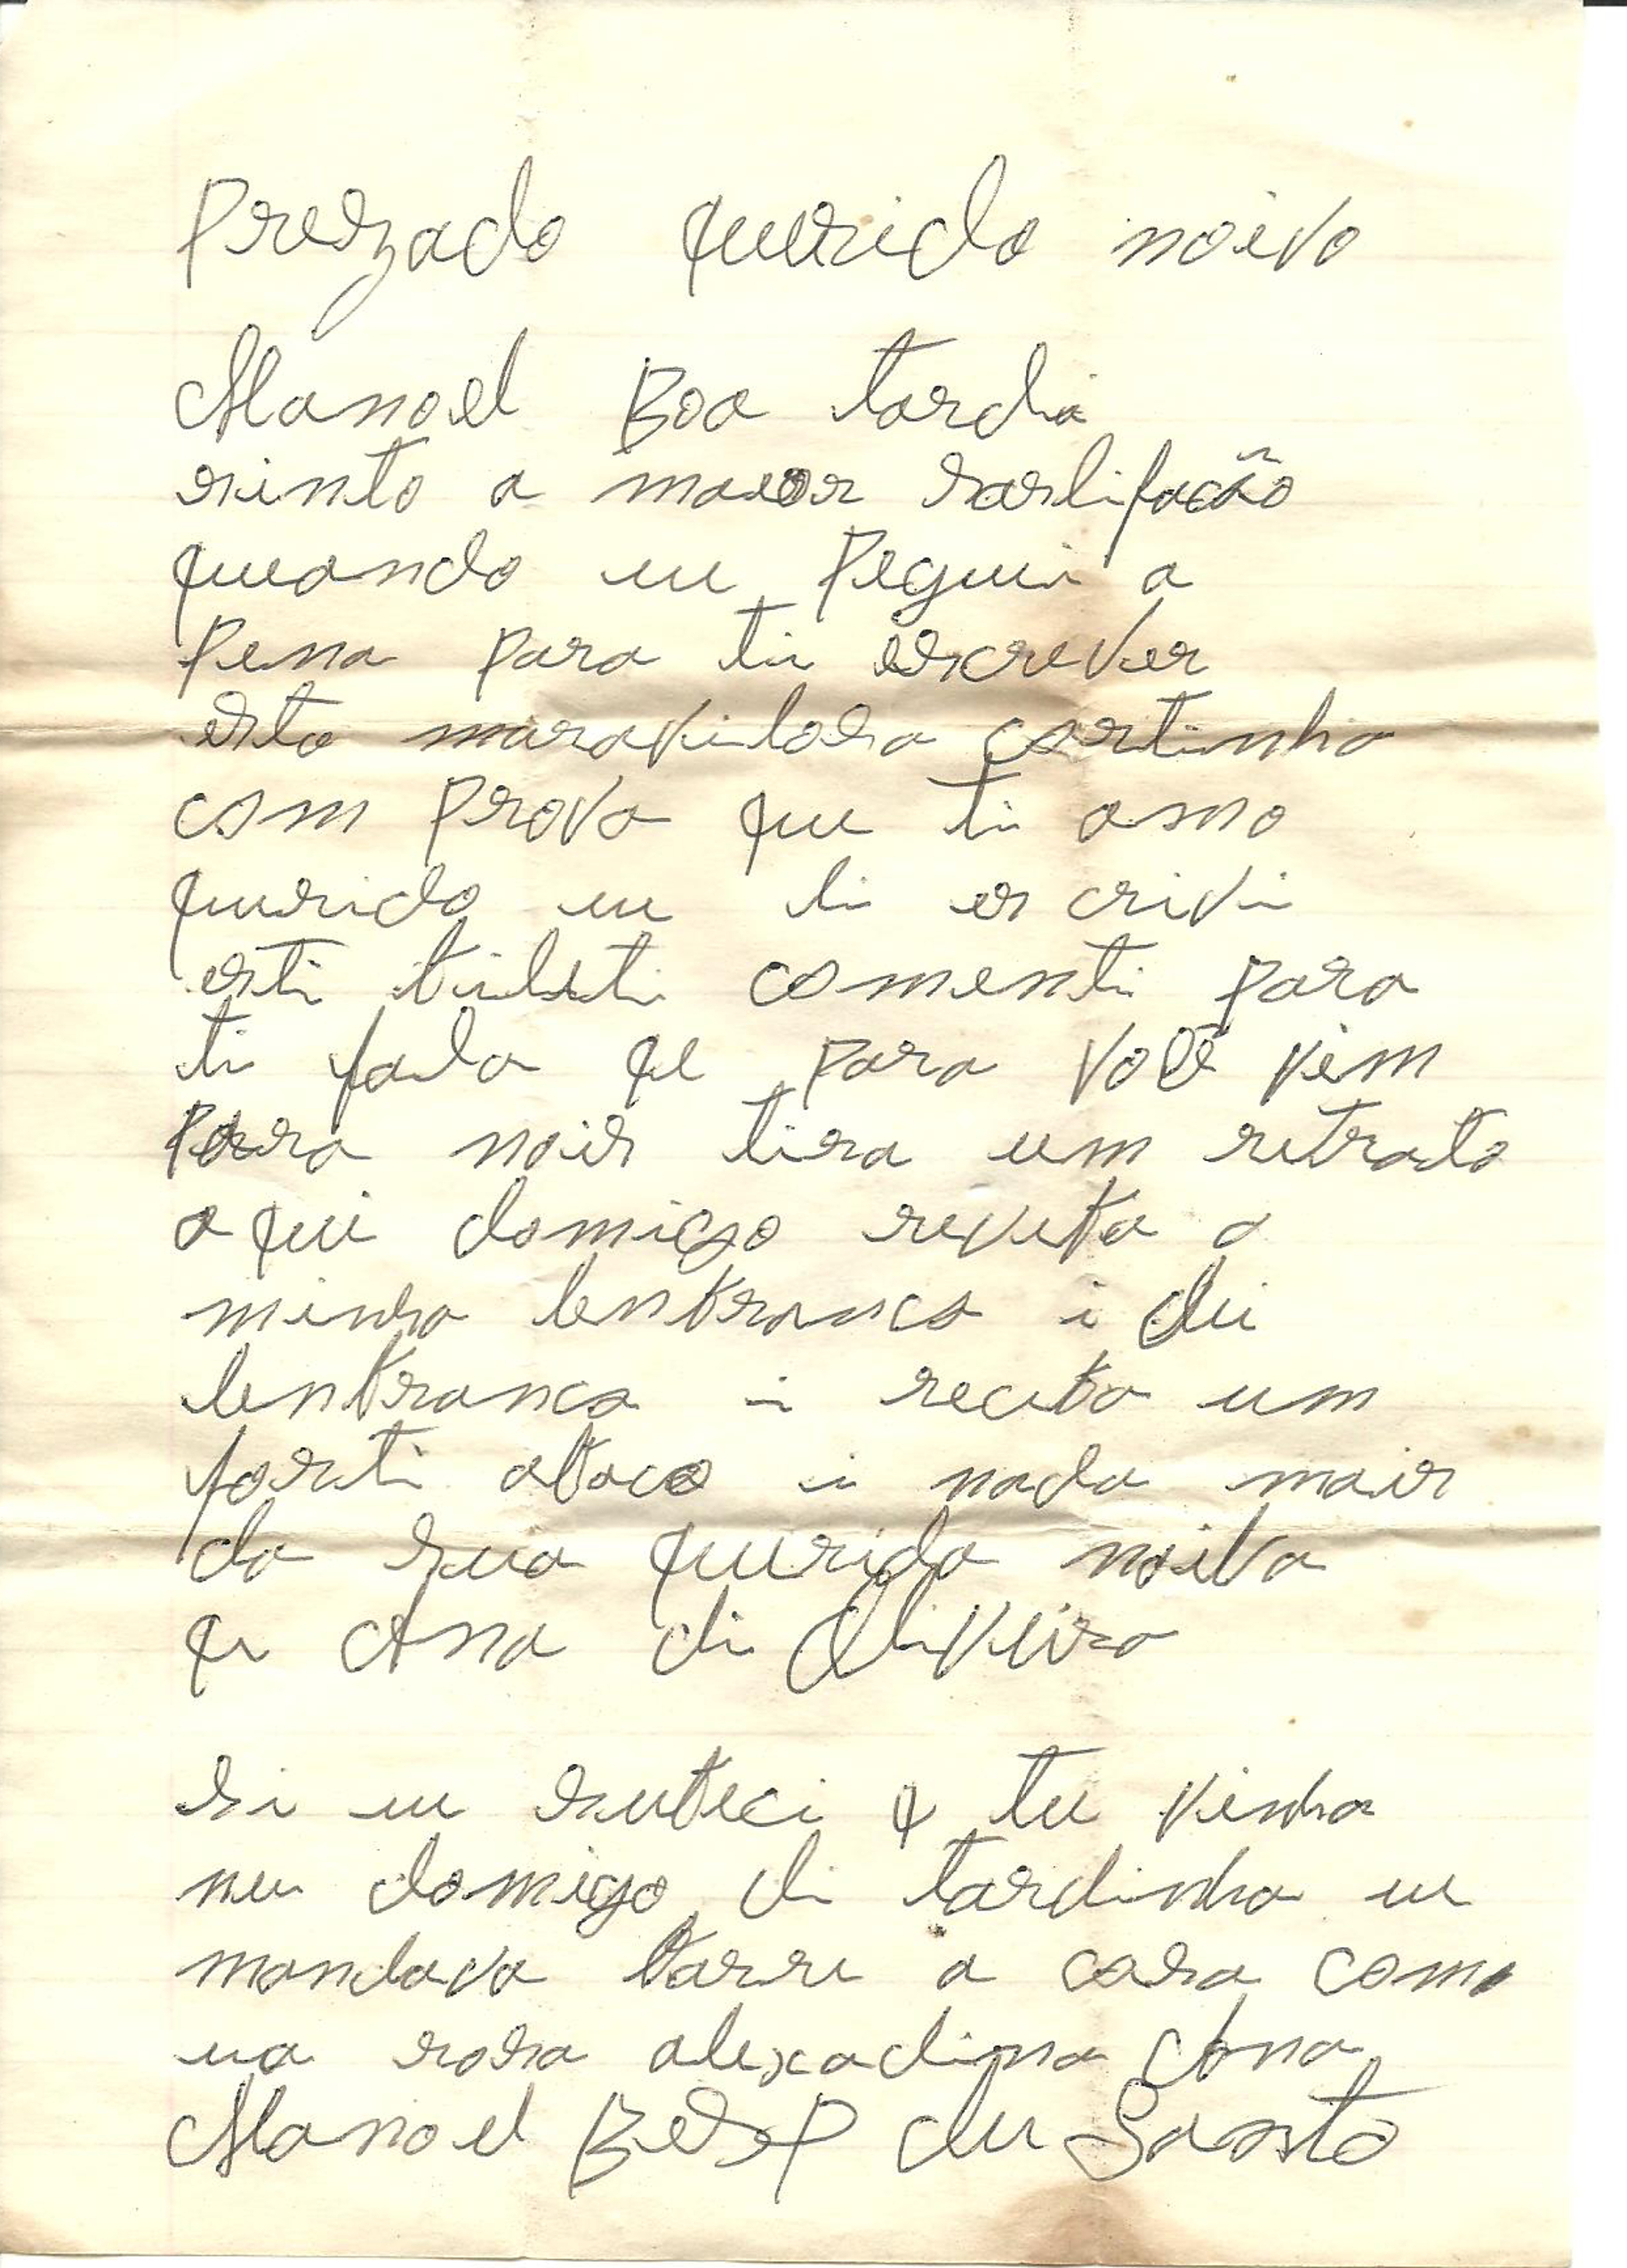 Prezado querido noivo
Manoel Boa tardi
sinto a maior sastifacão
quando eu Pegui a
Pena para ti escrever
esta maravilosa cartinha
com Prova que ti amo
querido eu ti es crivi
esti bilheti somenti para
ti fala qe para você vim
Para nois tira um retrato
a qui domigo reveba a
minha lenbranca i dei
lenbranca i receba um
forti abaco i nada mais
da sua querida noiva
qe Ana di Oliveira
si eu subeci q tu vinha
nu domigo di tardinha eu
mandava barre a casa como
ua rosa alexadina Ana
Manoel du Santo